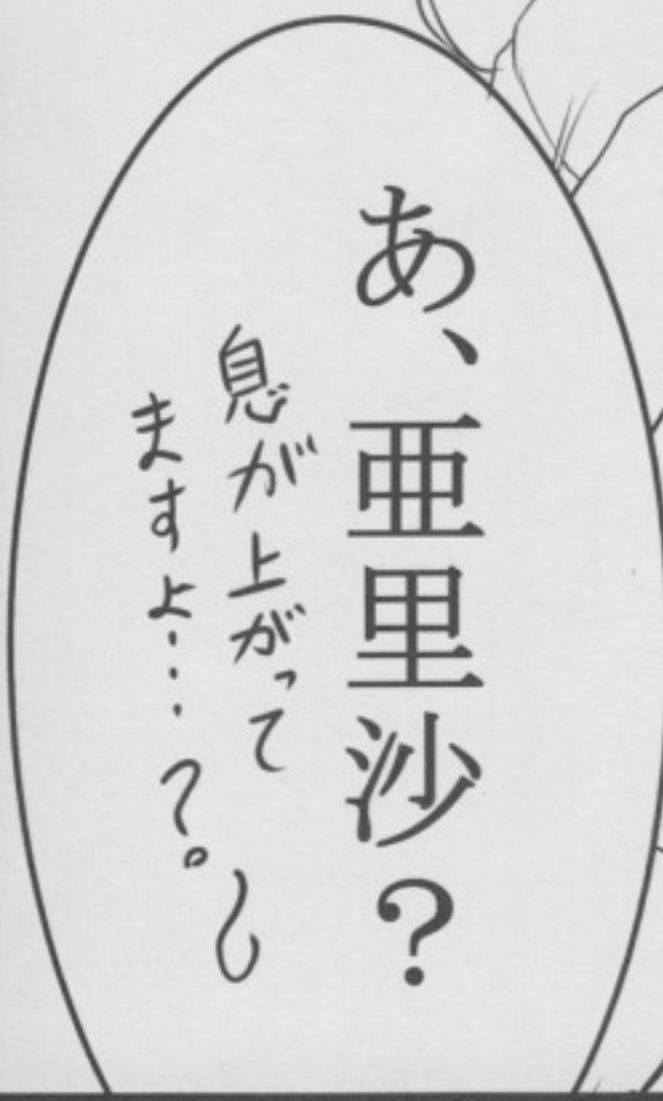 あ、亜里沙？
息が上がって
ますよ…？。